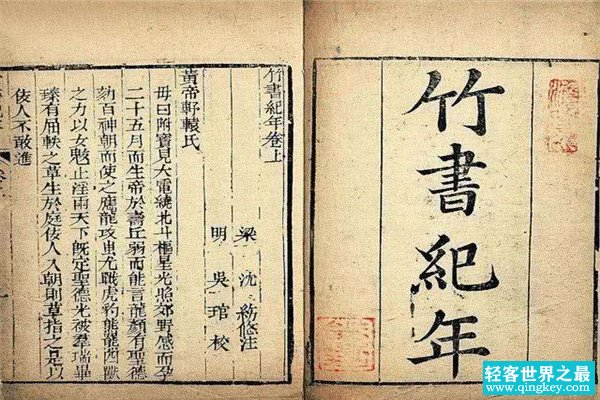 竹書紀年
竹書紀年卷上
梁 沈約附注
明 吳琯校
黃帝軒轅氏
母曰附寶見大電繞北斗樞星光照郊野感而孕
二十五月而生帝於壽丘弱而能言龍顏有聖德
劾百神朝而使之應龍攻蚩尤戰虎豹熊羆四獸
之力以女魃止淫雨天下既定聖德光被羣瑞畢
臻有屈軼之草生於庭佞人入朝則草指之是以
佞人不敢進
轻客世界之最
www.qingkey.com